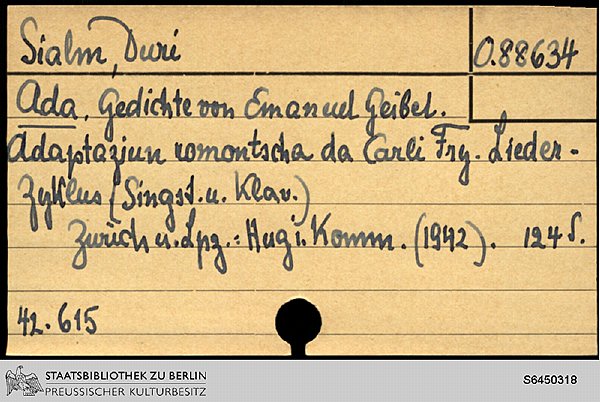 Sialm, Duri
O.88634
Ada. Gedichte von Emanuel Geibel.
Adaptaziun romontscha da Carli Fry. Lieder-
Zyklus (Singst. u. Klav.)
Zürich u. Lpz.: Hug i. Komm. (1942). 124 S.
42.615
STAATSBIBLIOTHEK ZU BERLIN
PREUSSISCHER KULTURBESITZ
S6450318